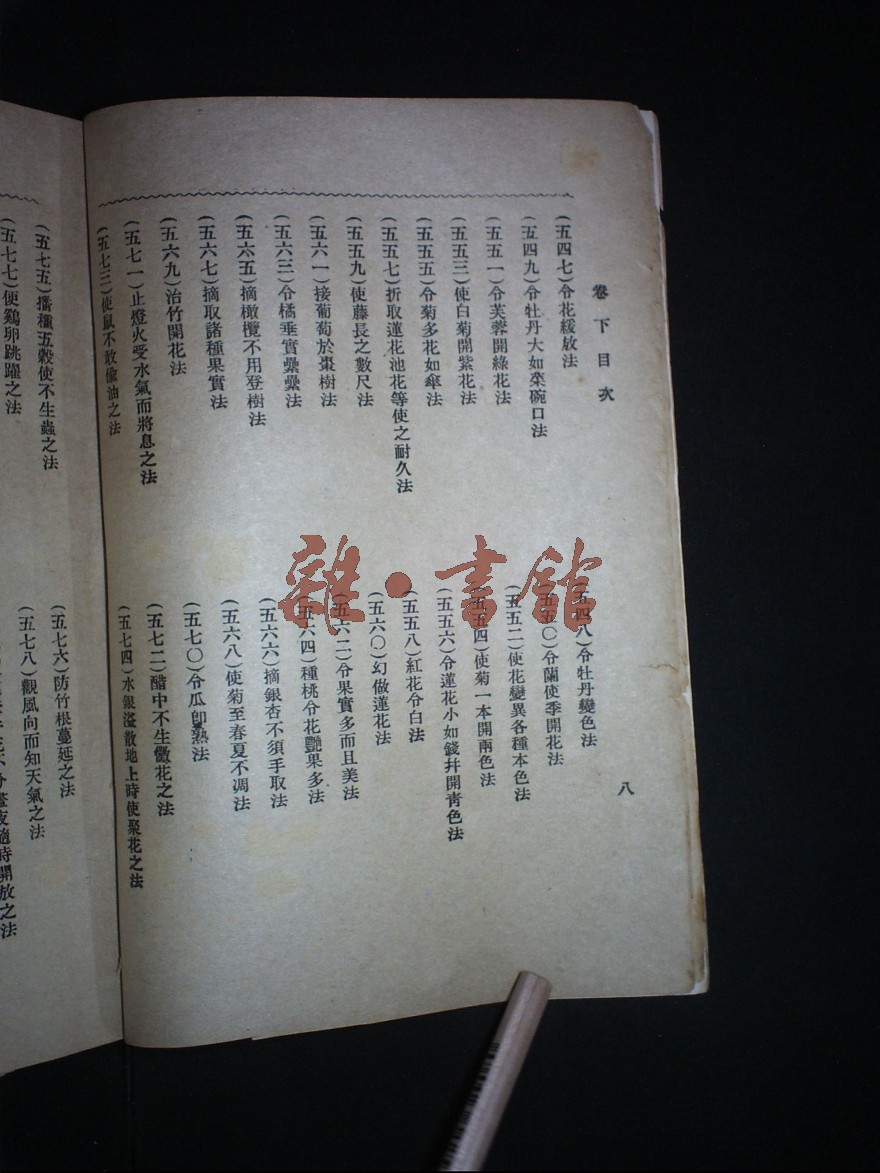 卷下目次
八
(五四七)令花緩放法
(五四八)令牡丹變色法
(五四九)令牡丹大如菜碗口法
(五五〇)令蘭使季開花法
(五五一)令芙蓉開綠花法
(五五二)使花變異各種本色法
(五五三)使白菊開紫花法
(五五四)使菊一本開兩色法
(五五五)令菊多花如傘法
(五五六)令蓮花小如錢幷開靑色法
(五五七)折取蓮花池花等使之耐久法
(五五八)紅花令白法
(五五九)使藤長之數尺法
(五六〇)幻做蓮花法
(五六一)接葡萄於棗樹法
(五六二)令果實多而且美法
(五六三)令橘垂實纍纍法
(五六四)種桃令花艷果多法
(五六五)摘橄欖不用登樹法
(五六六)摘銀杏不須手取法
(五六七)摘取諸種果實法
(五六八)使菊至春夏不凋法
(五六九)治竹開花法
(五七〇)令瓜卽熟法
(五七一)止燈火受水氣而將息之法
(五七二)醋中不生黴花之法
(五七三)使鼠不敢偸油之法
(五七四)水銀溢散地上時使聚花之法
(五七五)播種五穀使不生蟲之法
(五七六)防竹根蔓延之法
(五七七)使鷄卵跳躍之法
(五七八)觀風向而知天氣之法
分晝夜隨時開放之法
雜·書館